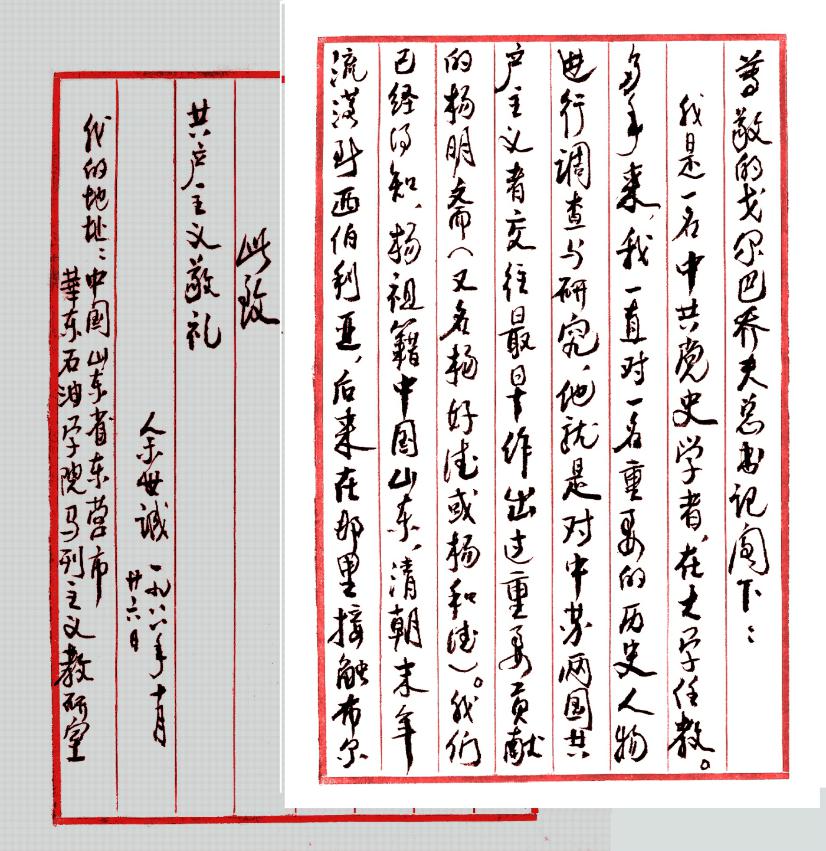 尊敬的戈尔巴乔夫总书记阁下：
我是一名中共党史学者，在大学任教。
多年来，我一直对一名重要的历史人物
进行调查与研究，他就是对中苏两国共
产主义者交往最早作出过重要贡献
的杨明斋（又名杨好德或杨和德）。我们
已经得知，杨祖籍中国山东，清朝末年
流落到西伯利亚，后来在那里接触布尔
此致
共产主义敬礼
余世诚 一九八八年十月
廿六日
我的地址：中国山东省东营市
華东石油学院马列主义教研室